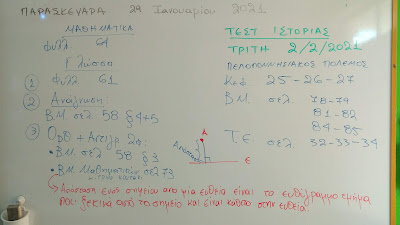 ΠΑΡΑΣΚΕΥΑΔΑ 29 Ιανουαρίου 2021
ΜΑΘΗΜΑΤΙΚΑ
φυλλ 61
Γλώσσα
① φυλλ 61
② Ανάγνωση:
Β.Μ. σελ 58 §4+5
③ Ορθ + Αντιγρ
• Β.Μ. σελ 58 §3
• Β.Μ. Μαθηματικών σελ 73
ΤΕΣΤ ΙΣΤΟΡΙΑΣ
ΤΡΙΤΗ 2/2/2021
ΠΕΛΟΠΟΝΝΗΣΙΑΚΟΣ ΠΟΛΕΜΟΣ
Κεφ 25-26-27
Β.Μ. σελ. 78-79
81-82
84-85
Τ.Ε. σελ 32-33-34
Α
Απόσταση
ε
Απόσταση ενός σημείου από μία ευθεία είναι το ευθύγραμμο τμήμα
που ξεκινά από το σημείο και είναι κάθετο στην ευθεία